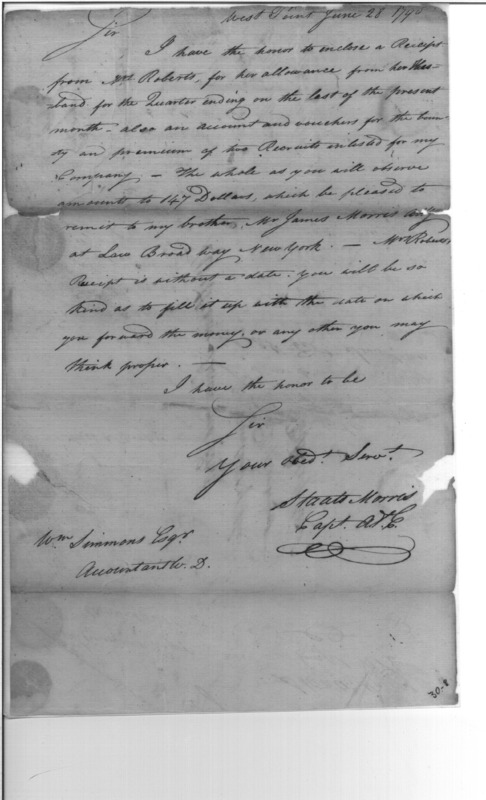 West Point June 28
Sir
I have the honor to enclose a Receipt
from Mrs Roberts, for her allowance from her Hus-
band for the Quarter ending on the last of the present
month - also an account and vouchers for the boun-
ty an premium of two Recruits enlisted for my
Company. - The whole as you will observe
amounts to 147 Dollars, which be pleased to
remit to my brother, Mr James Morris
at Law Broad Way New York. - Mrs Roberts
Receipt is without a date: you will be so
kind as to fill it up with the date on which
you forward the money, or any other you may
think proper. -
I have the honor to be
Sir
Your Obdt. Servt.
Staats Morris
Capt. A&E
Wm Simmons Esqr
Accountant W. D.
30-8